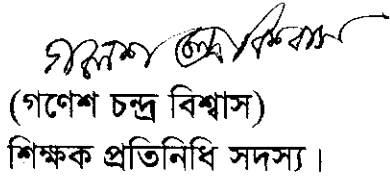 গনেশ চন্দ্র বিশ্বাস
(গণেশ চন্দ্র বিশ্বাস)
শিক্ষক প্রতিনিধি সদস্য।